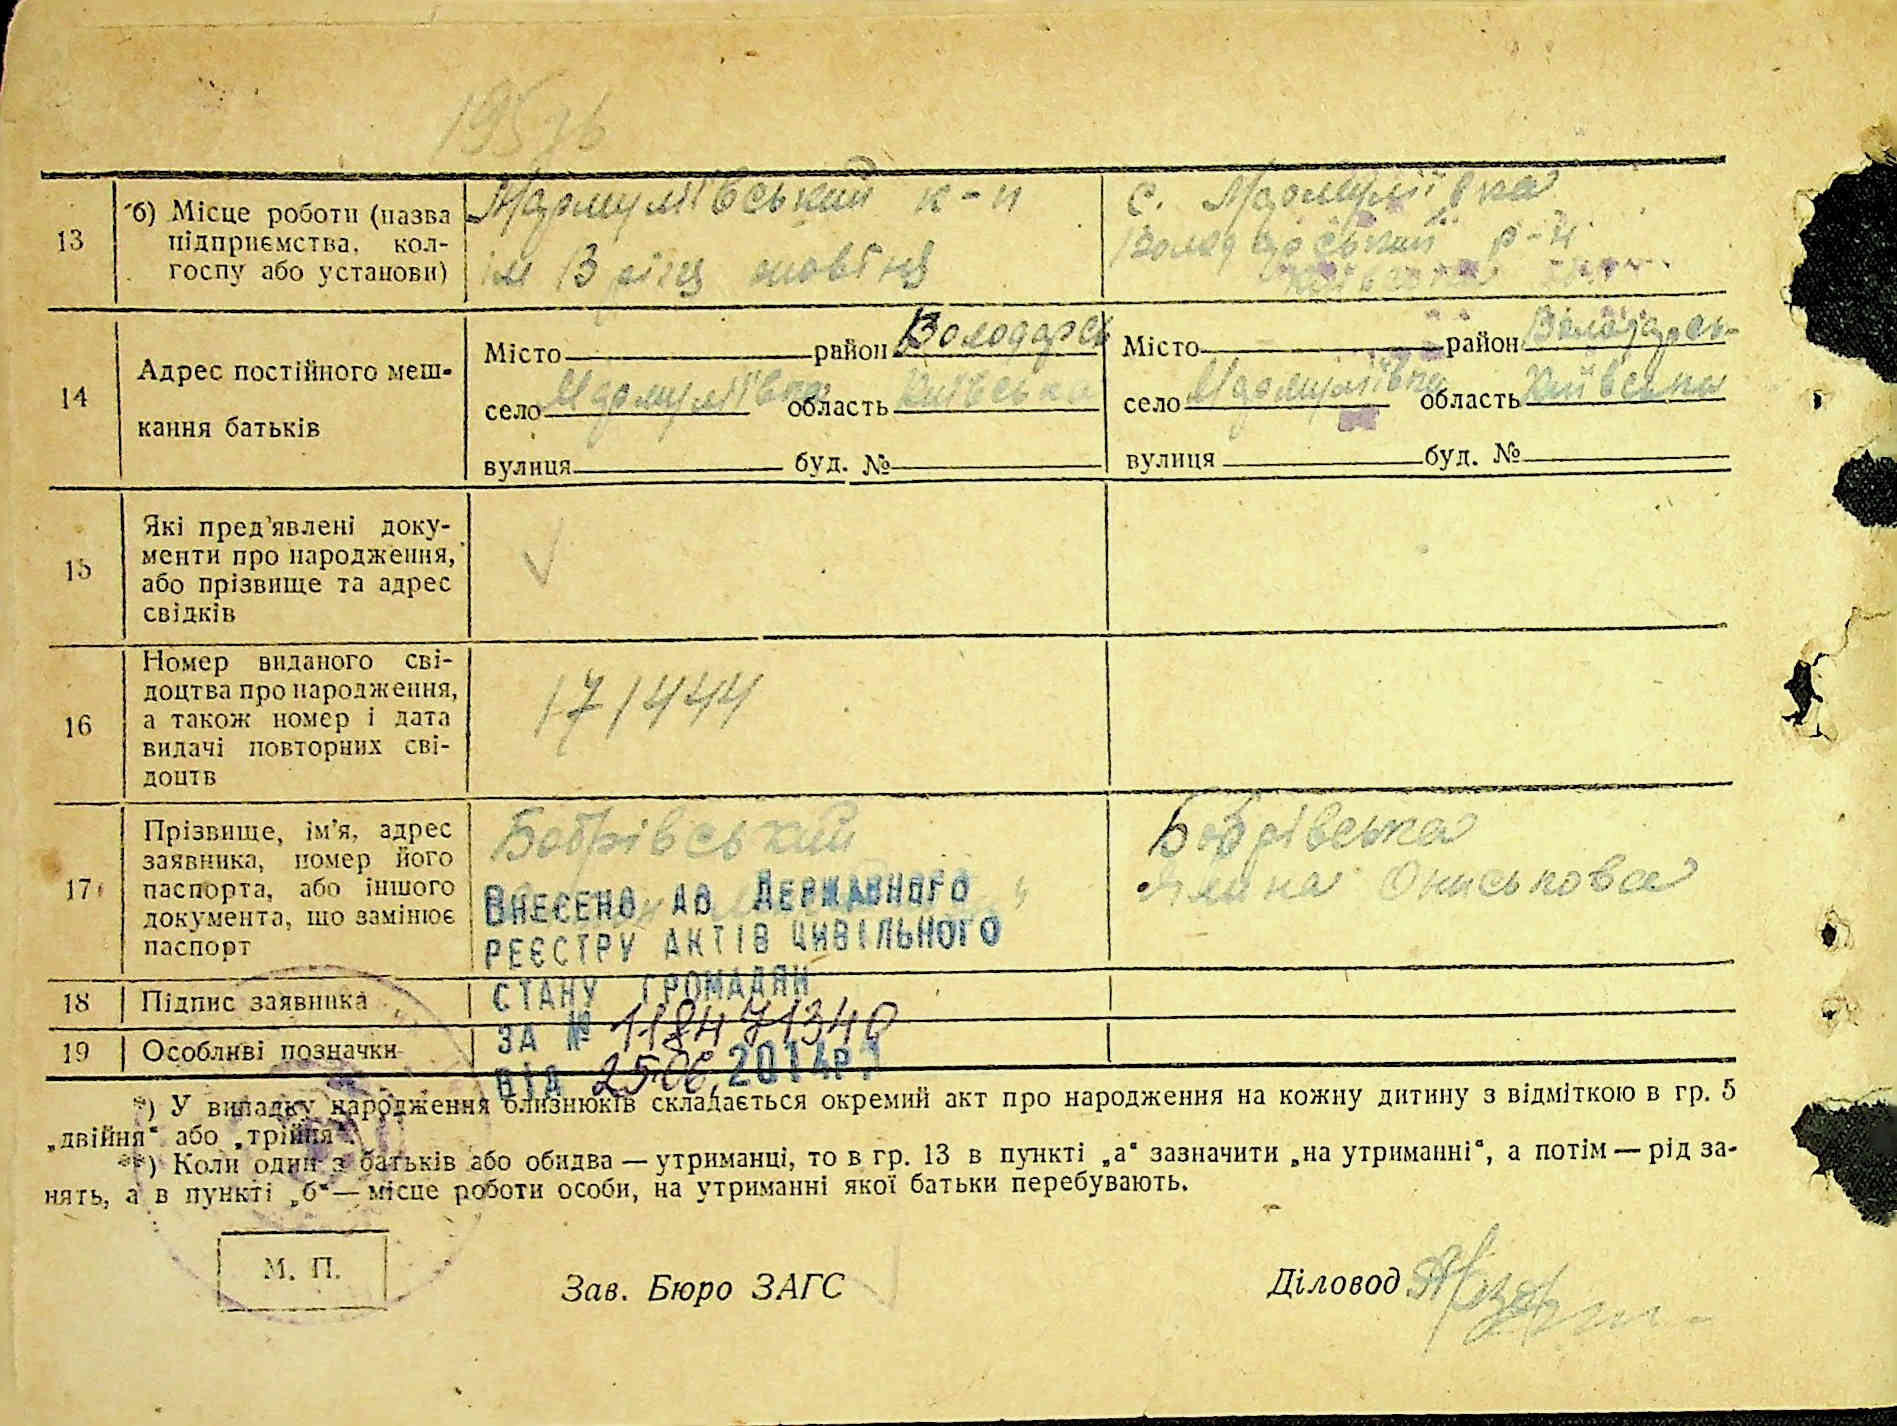 13
б) Місце роботи (назва
підприємства, кол-
госпу або установи)
к-п
ім 13 річч жовтня
с.
Володарський р-н
Київська
14
Адрес постійного меш-
кання батьків
Місто район Володарсь
село область Київська
вулиця буд. №
Місто район Володарсь-
село область Київська
вулиця буд. №
15
Які пред'явлені доку-
менти про народження,
або прізвище та адрес
свідків
16
Номер виданого сві-
доцтва про народження,
а також номер і дата
видачі повторних сві-
доцтв
171444
17
Прізвище, ім'я, адрес
заявника, номер його
паспорта, або іншого
документа, що замінює
паспорт
Бобрівський
Бобрівська
Ониськова
ВНЕСЕНО ДО ДЕРЖАВНОГО
РЕЄСТРУ АКТІВ ЦИВІЛЬНОГО
СТАНУ ГРОМАДЯН
ЗА № 118471340
ВІД 25.06.2014р.
18 Підпис заявника
19 Особливі позначки
*) У випадку народження близнюків складається окремий акт про народження на кожну дитину з відміткою в гр. 5
„двійня" або „трійня"
**) Коли один з батьків або обидва — утриманці, то в гр. 13 в пункті „а" зазначити „на утриманні", а потім — рід за-
нять, а в пункті „б" — місце роботи особи, на утриманні якої батьки перебувають.
М. П.
Зав. Бюро ЗАГС
Діловод